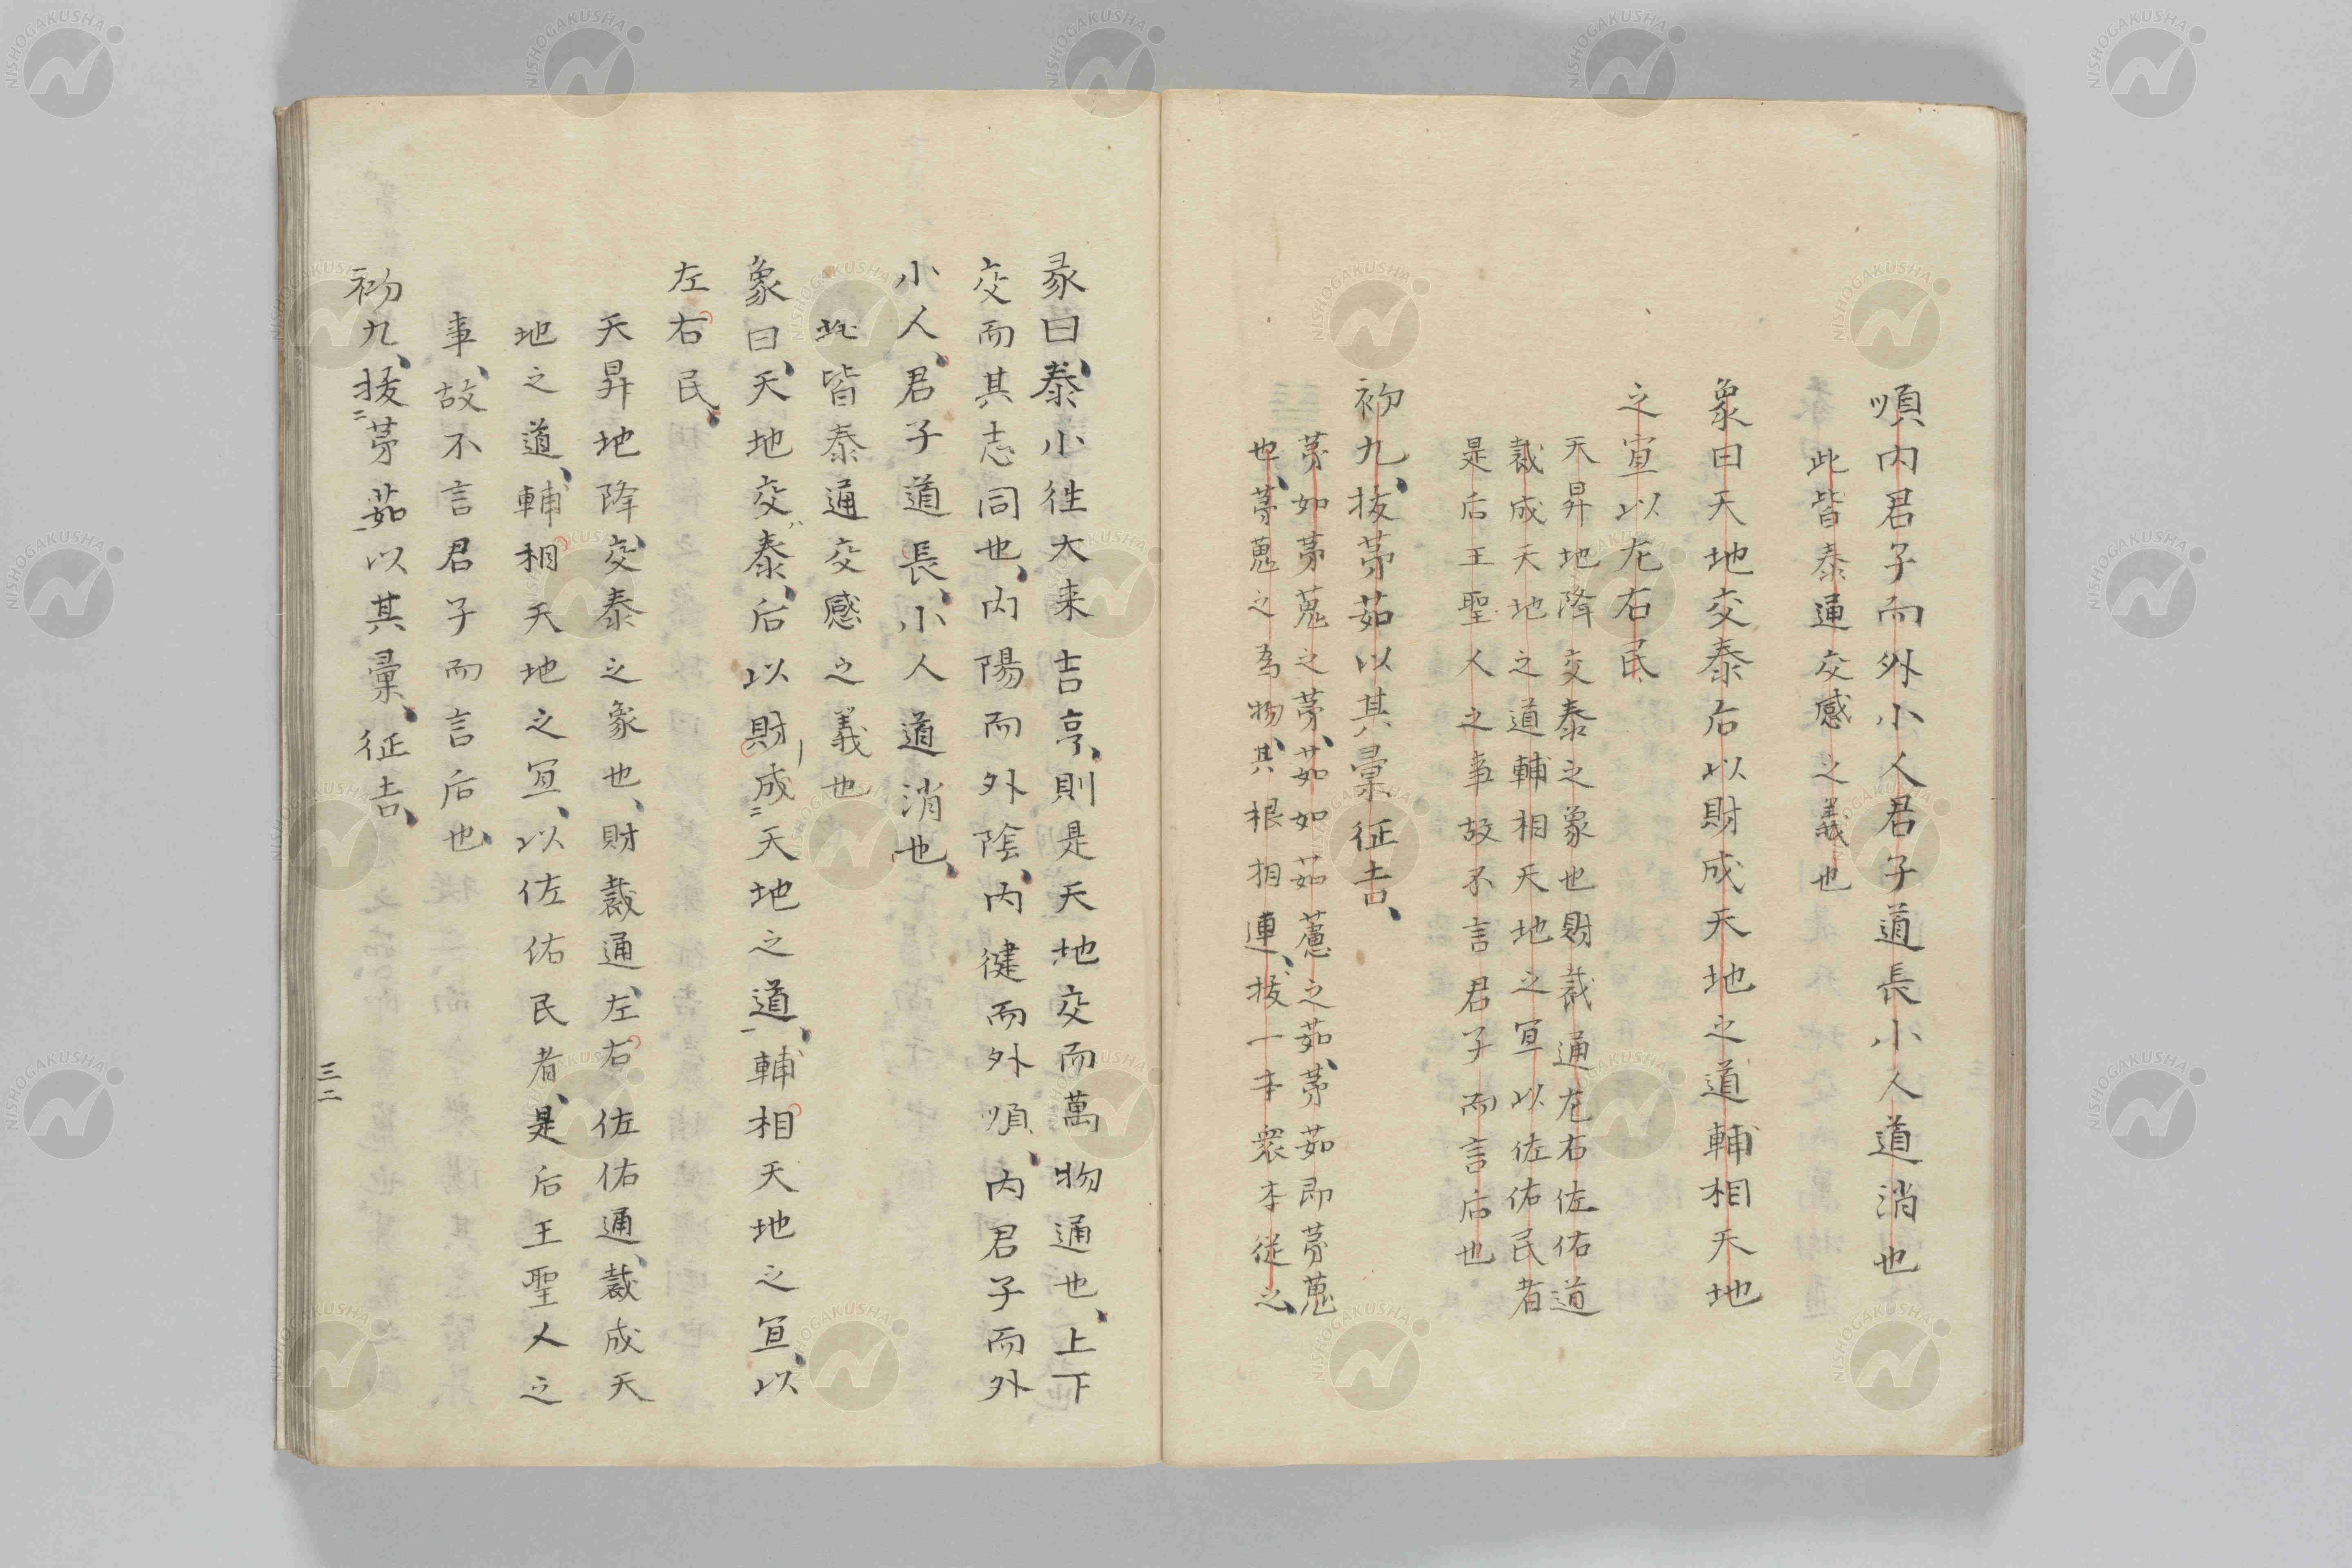 順内君子而外小人君子道長小人道消也
此皆泰通交感之義也
象曰天地交泰后以財成天地之道輔相天地
之宜以左右民
天昇地降交泰之象也財裁通左右佐佑道
裁成天地之道輔相天地之宜以佐佑民者
是后王聖人之事故不言君子而言后也
初九、拔茅茹以其彙征吉、
茅如茅蒐之茅、茹如茹藘之茹、茅茹即茅蒐
也、茅蒐之為物、其根相連、拔一本衆本従之、
彖曰、泰小往大来吉亨、則是天地交而萬物通也、上下
交而其志同也、内陽而外陰、内健而外順、内君子而外
小人、君子道長、小人道消也、
此皆泰通交感之義也
象曰、天地交泰、后以財成二天地之道一、輔相天地之宜、以
左右民、
天昇地降、交泰之象也、財裁通、左右佐佑通、裁成天
地之道、輔相天地之宜、以佐佑民者、是后王聖人之
事、故不言君子而言后也、
初九、拔二茅茹一以其彙、征吉、
三二
NISHOGAKUSHA